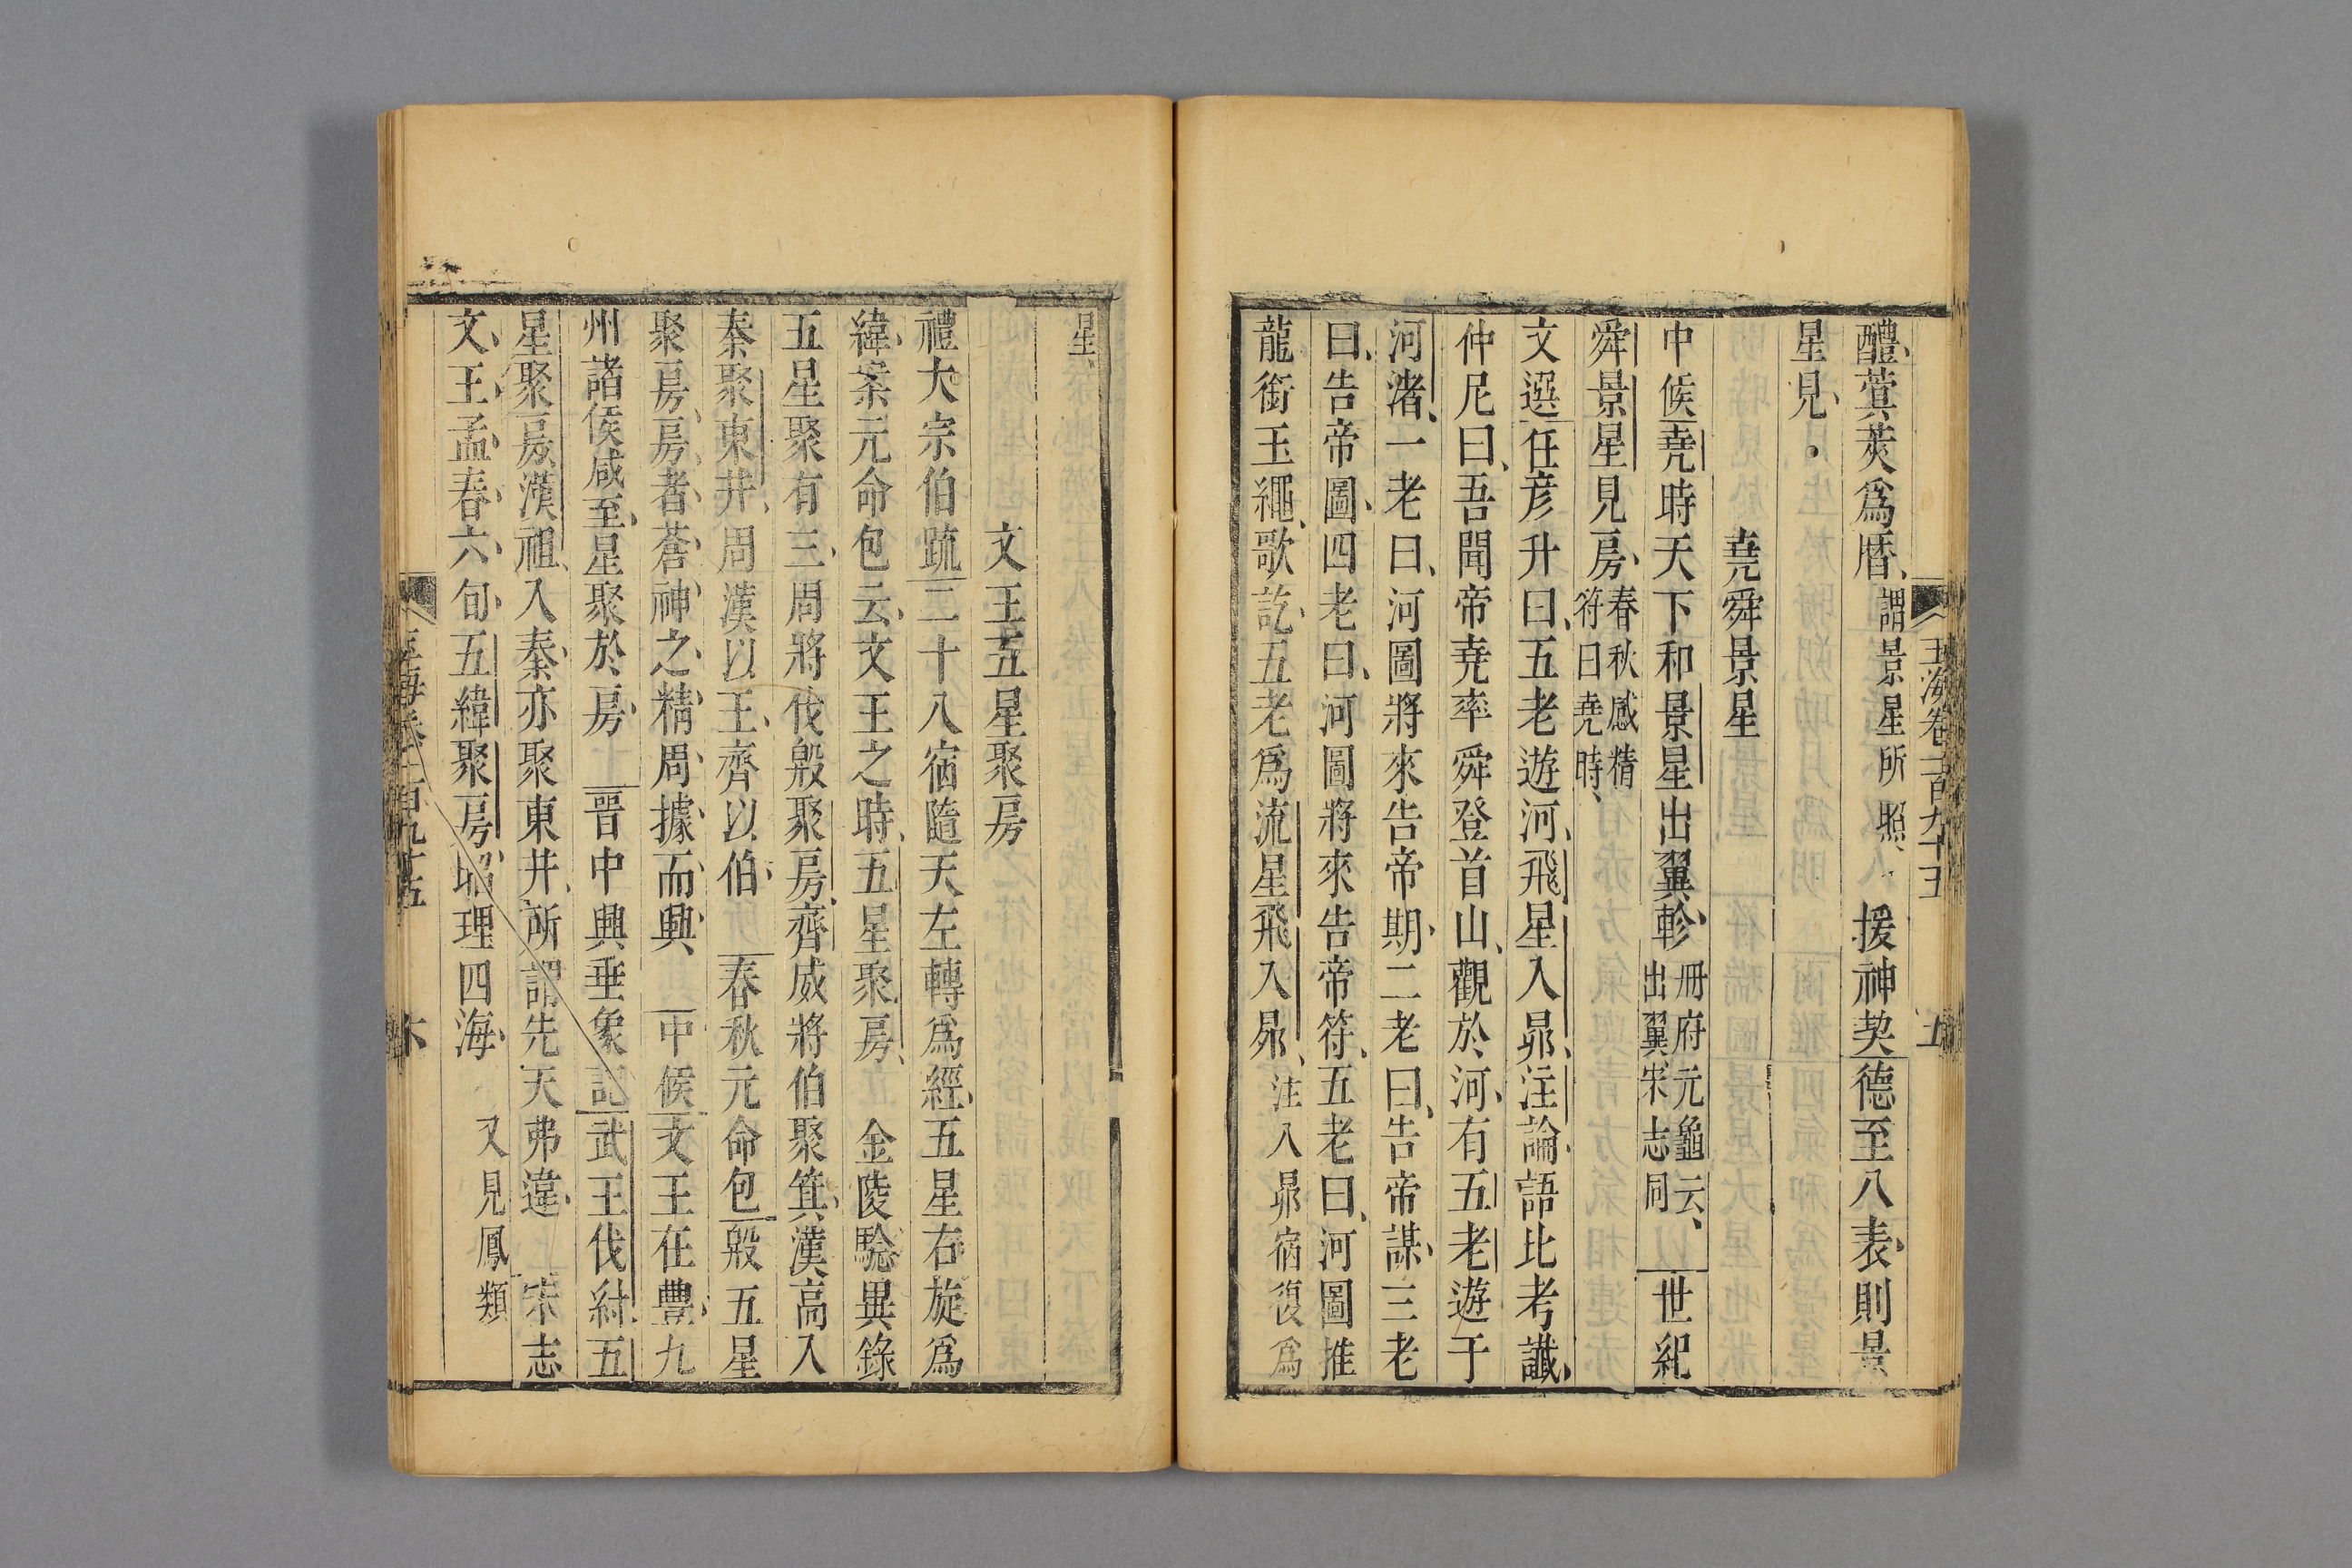 玉海卷一百九十五　五
醴蓂莢爲暦謂景星所照　援神契德至八表則景
星見
堯舜景星
中候堯時天下和景星出翼軫冊府元龜云出翼宋志同　世紀
舜景星見房春秋感精符曰堯時
文選任彦升曰五老遊河飛星入昴注論語比考讖
仲尼曰吾聞帝堯率舜登首山觀於河有五老遊于
河渚一老曰河圖將來告帝期二老曰告帝謀三老
曰告帝圖四老曰河圖將來告帝符五老曰河圖推
龍銜玉繩歌訖五老爲流星飛入昴注入昴宿復爲
星
文王五星聚房
禮大宗伯疏二十八宿隨天左轉爲經五星右旋爲
緯案元命包云文王之時五星聚房　金陵騐異錄
五星聚有三周將伐殷聚房齊威將伯聚箕漢高入
秦聚東井周漢以王齊以伯　春秋元命包殷五星
聚房房者蒼神之精周據而興　中候文王在豐九
州諸侯咸至星聚於房　晉中興垂象記武王伐紂五
星聚房漢祖入秦亦聚東井所謂先天弗違　宋志
文王孟春六旬五緯聚房　理四海　又見鳳類
玉海卷一百九十五